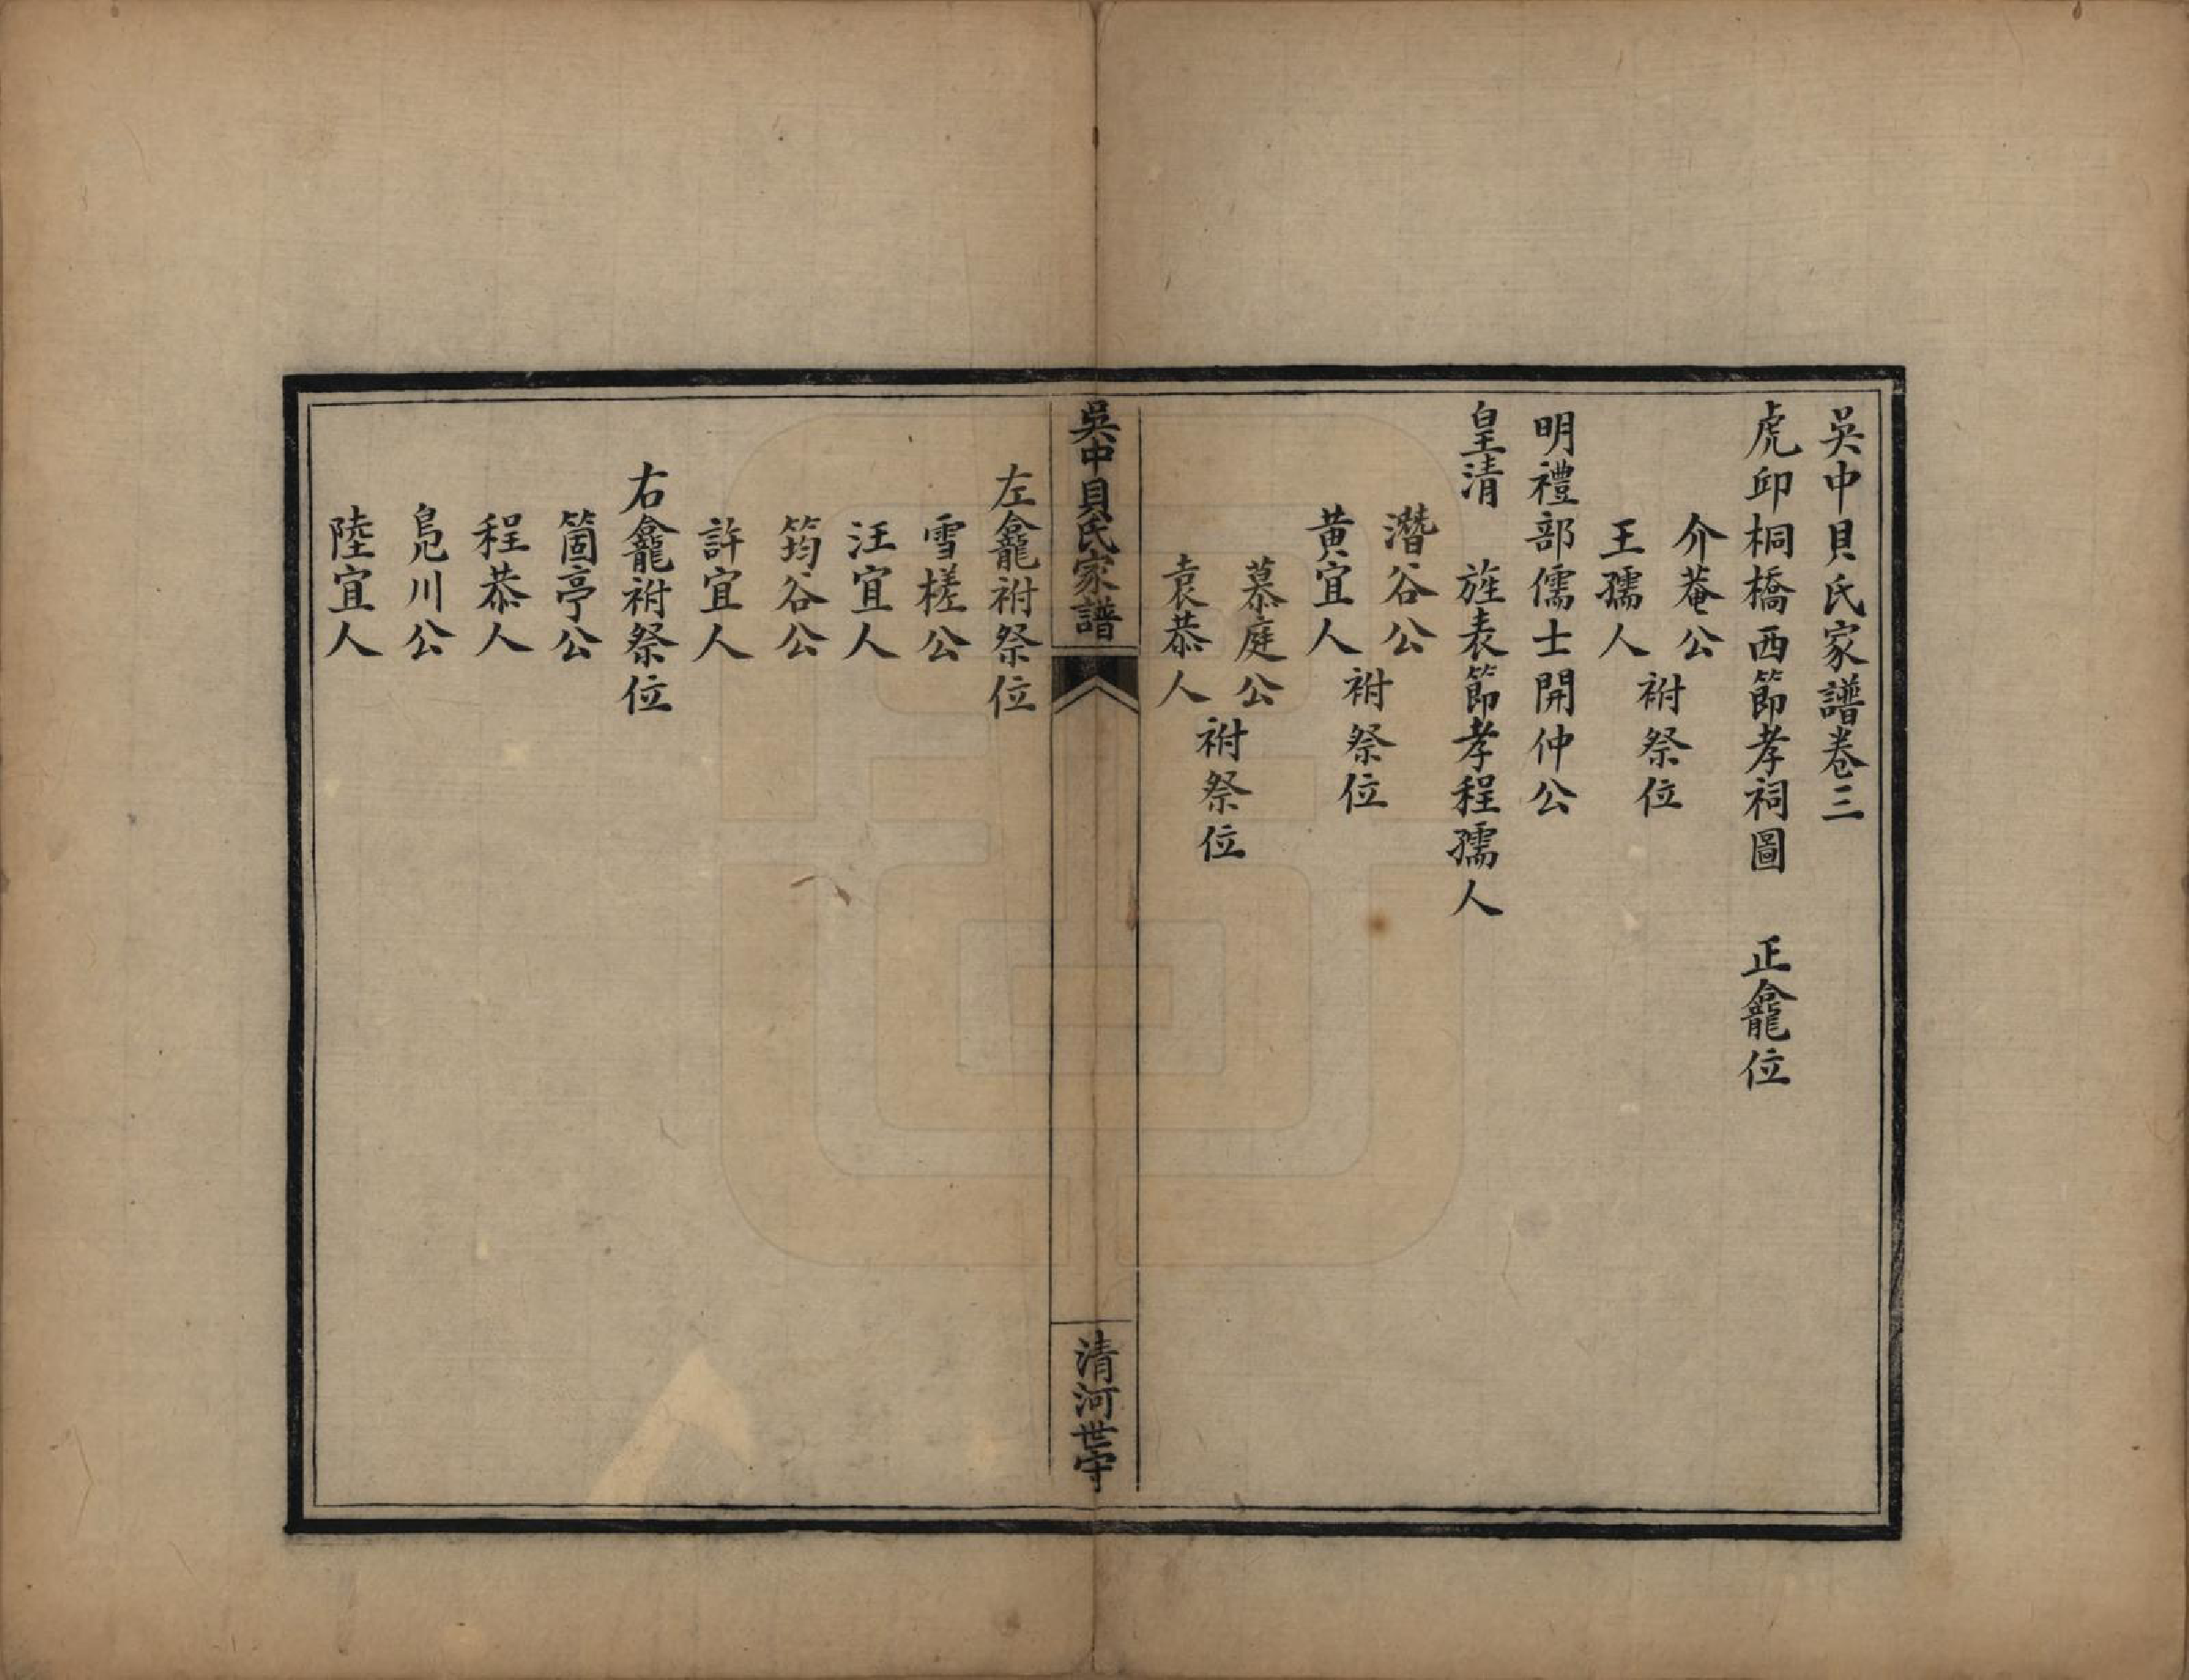 吳中貝氏家譜卷三
虎邱桐橋西節孝祠圖　正龕位
介菴公
王孺人
祔祭位
明禮部儒士開仲公
皇清　旌表節孝程孺人
潛谷公
黃宜人
祔祭位
慕庭公
袁恭人
祔祭位
吳中貝氏家譜
清河世守
左龕祔祭位
雪槎公
汪宜人
筠谷公
許宜人
右龕祔祭位
箇亭公
程恭人
鳧川公
陸宜人